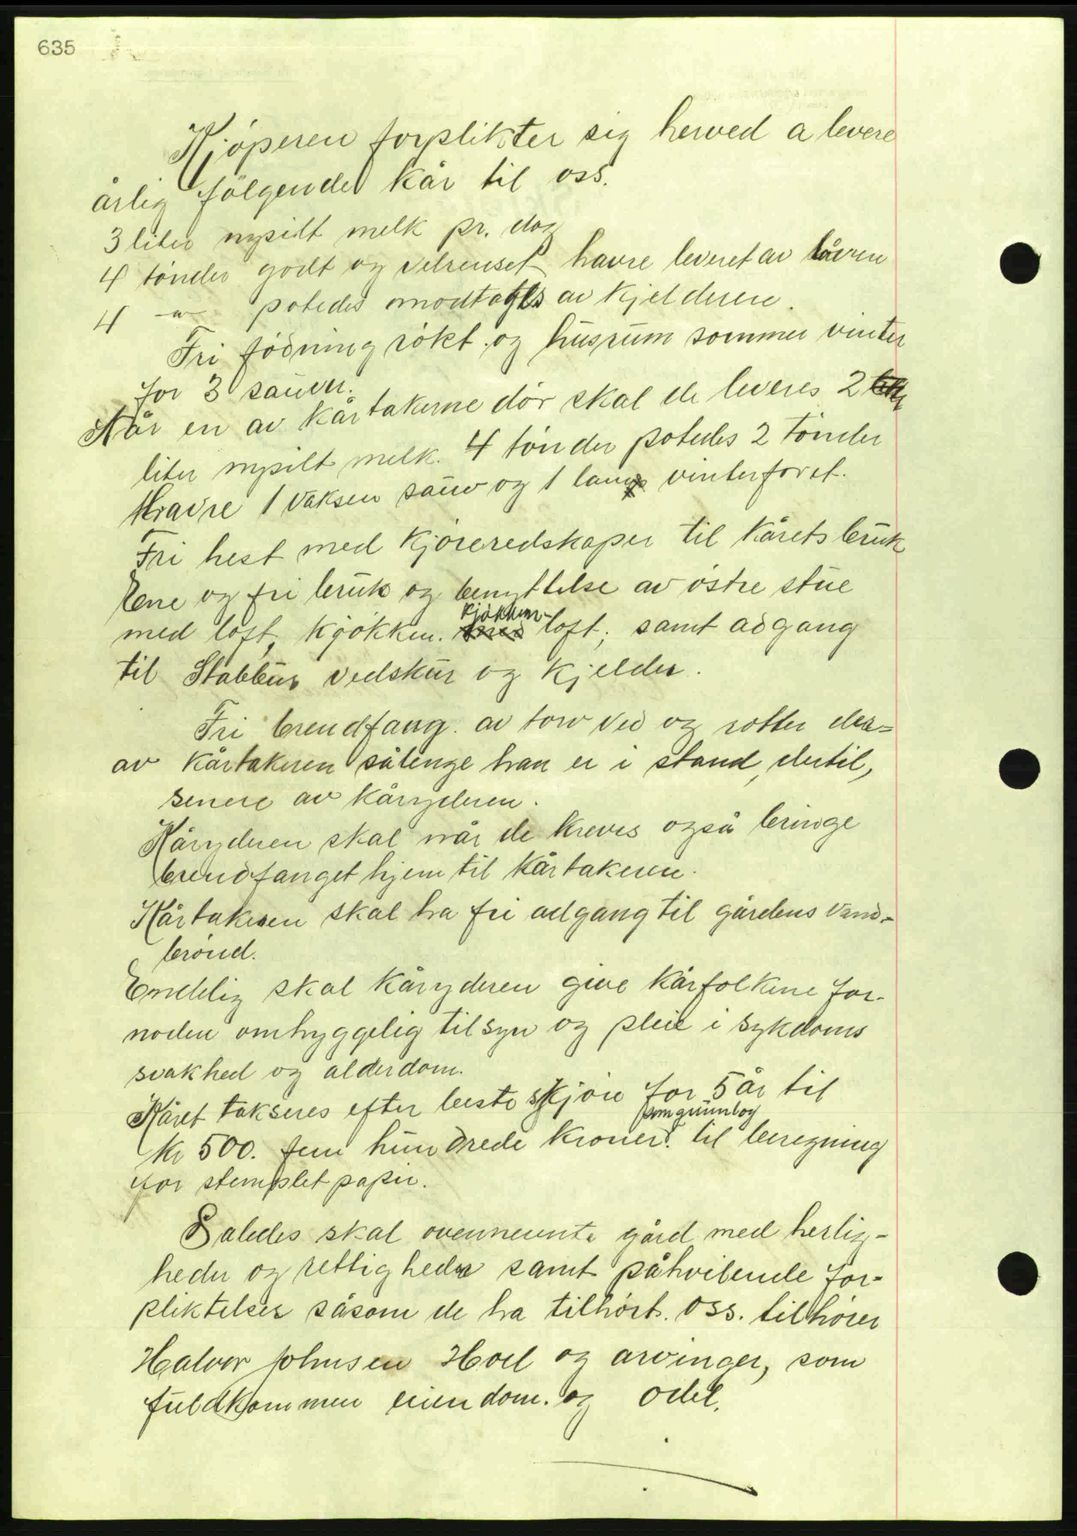 635
Kjøperen forplikter sig herved a levere
årlig følgende kår til oss.
3 liter nysilt melk pr. dag
4 tønder godt og velrenset havre leveret av låven
4 -"- potedes modtages av kjelderen.
Fri fødning røkt og husrum sommer vinter
for 3 sauer.
Når en av kårtakerne dør skal de leveres 2
liter nysilt melk. 4 tønder potedes 2 tønder
Havre 1 vaksen sauv og 1 lam vinterforet.
Fri hest med kjøreredskaper til kårets bruk
Ene og fri bruk og benyttelse av østre stue
med loft, kjøkken. kjøkken- loft, samt adgang
til Stabbur vedskur og kjelder.
Fri brendfang. av torv ved og rotter der=
av kårtakeren sålenge han er i stand, dertil,
senere av kåryderen.
Kåryderen skal når de kreves også bringe
brendfanget hjem til kårtakeren.
Kårtakeren skal ha fri adgang til gårdens vand-
brønd.
Endelig skal kåryderen give kårfolkene for-
noden omhyggelig tilsyn og pleie i sykdoms
svakhed og alderdom.
Kåret takseres efter beste skjøn for 5 år til
kr 500. fem hundrede kroner. som grunlag til beregning
for stemplet papir.
Saledes skal ovennevnte gård med herlig-
heder og rettigheder samt påhvilende for-
pliktelser såsom de ha tilhørt. oss. tilhører
Halvor Johnsen Hoel og arvinger, som
fuldkommen eiendom. og odel.